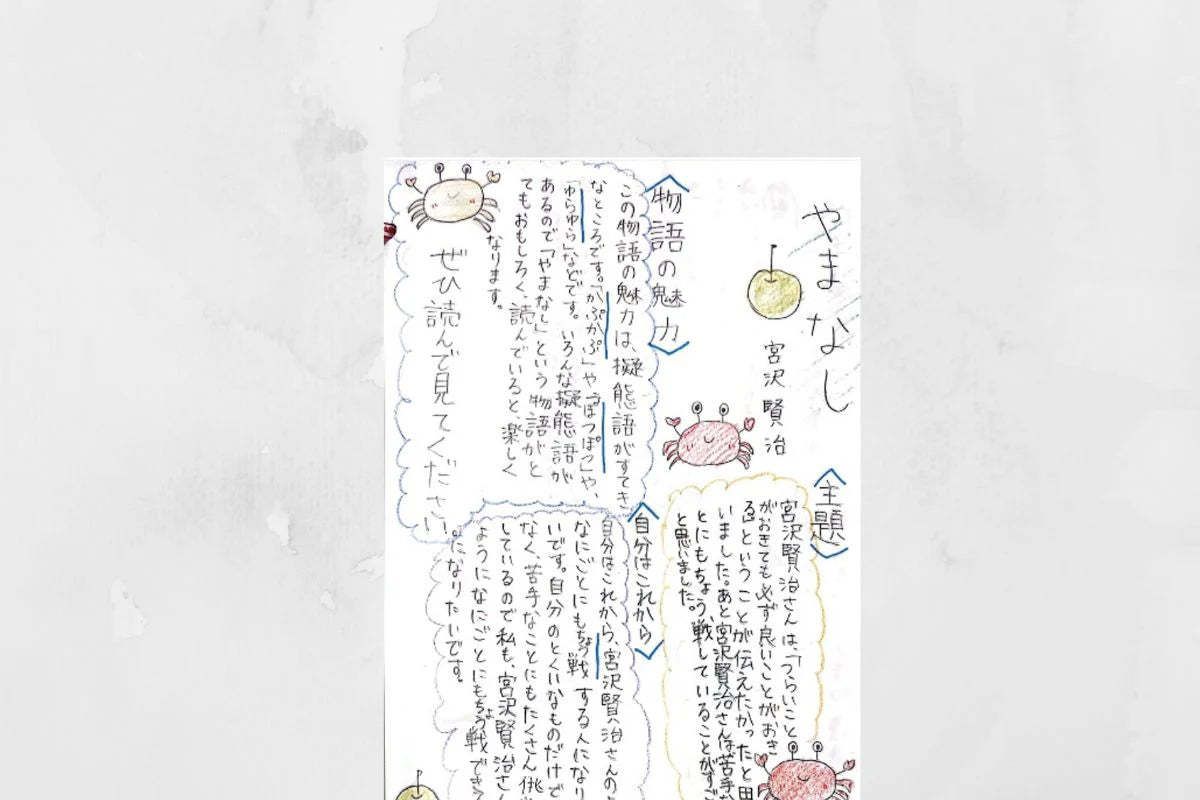 やまなし
宮沢賢治
〈主題〉
宮沢賢治さんは、「つらいこと
がおきても必ず良いことがおき
る」ということが伝えたかったと思
いました。あと宮沢賢治さんは苦手な
とにもちょう戦していることがすご
と思いました。
〈物語の魅力〉
この物語の魅力は、擬態語がすてき
なところです。「かぷかぷ」や「ぽつぽつ」や、
「ゆらゆら」などです。いろんな擬態語が
あるので「やまなし」という物語がと
てもおもしろく、読んでいると、楽しく
なります。
ぜひ読んで見てください。
〈自分はこれから〉
自分はこれから、宮沢賢治さんの
なにごとにもちょう戦する人になり
いです。自分のとくいなものだけで
なく、苦手なことにもたくさん挑
しているので私も、宮沢賢治さん
ようになにごとにもちょう戦できる
になりたいです。